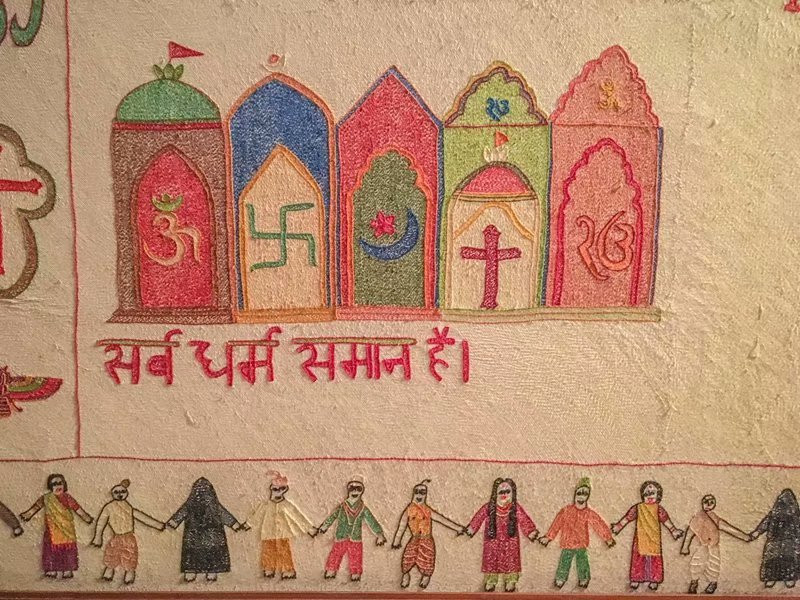 सर्व धर्म समान है।